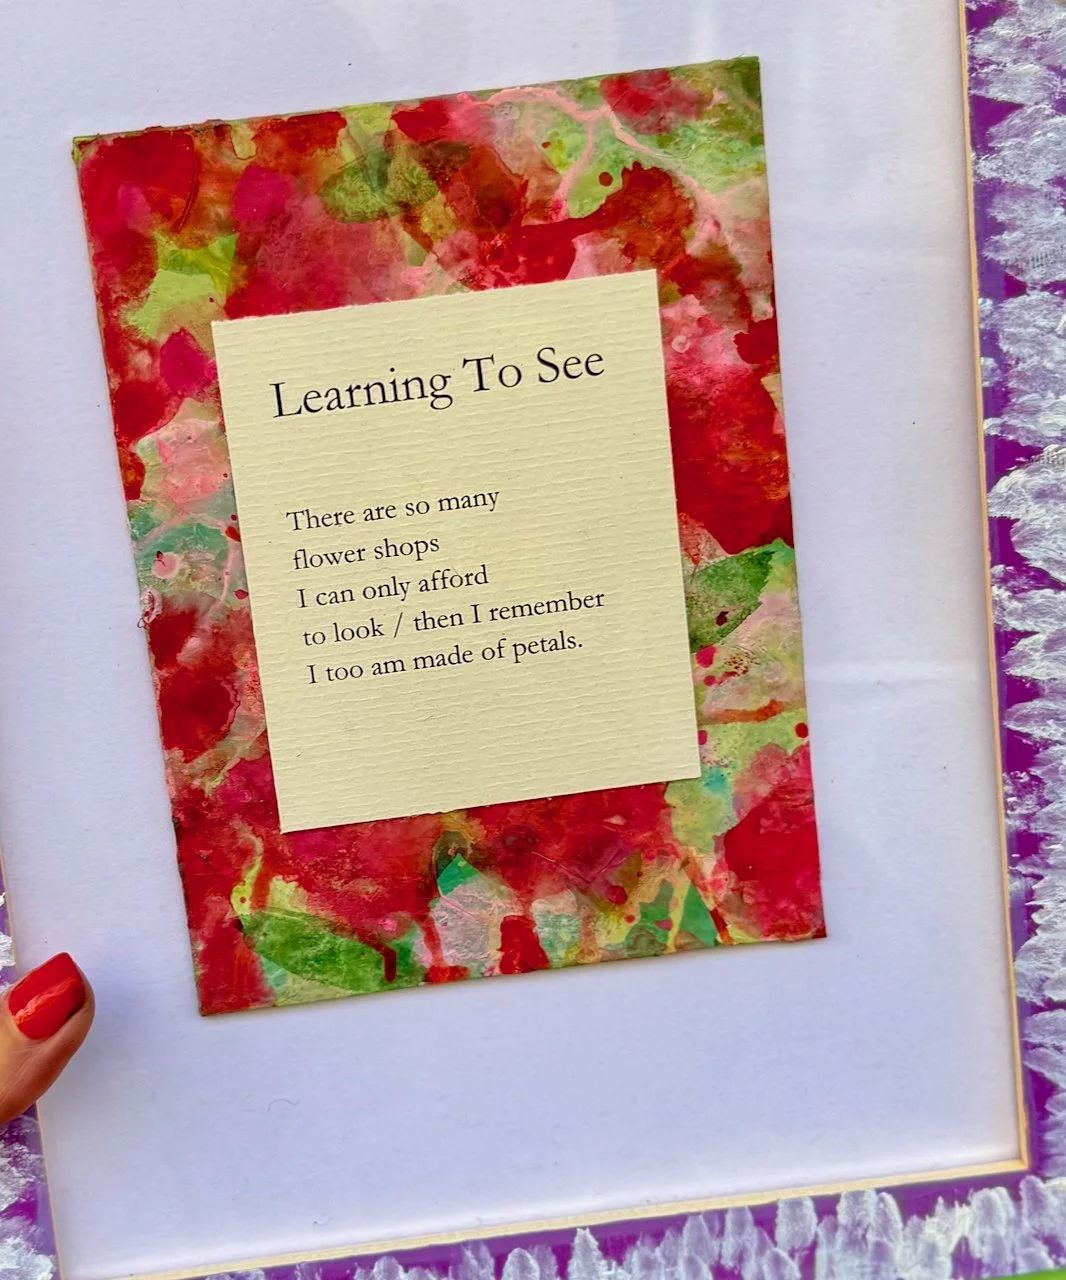 Learning To See
There are so many
flower shops
I can only afford
to look / then I remember
I too am made of petals.